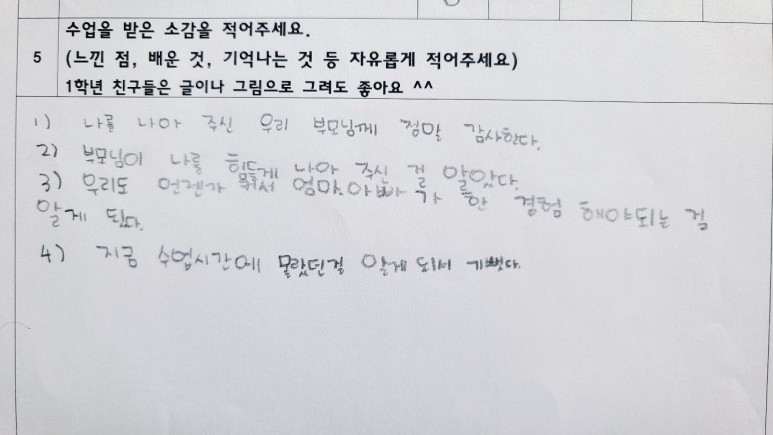 수업을 받은 소감을 적어주세요.
5 (느낀 점, 배운 것, 기억나는 것 등 자유롭게 적어주세요)
1학년 친구들은 글이나 그림으로 그려도 좋아요 ^^
1) 나를 나아 주신 우리 부모님께 정말 감사한다.
2) 부모님이 나를 힘드게 나아 주신 걸 알았다.
3) 우리도 언젠가 커서 엄마,아빠가 한 경험 해야되는 걸
알게 됬다.
4) 지금 수업시간에 몰랐던걸 알게 되서 기뻤다.